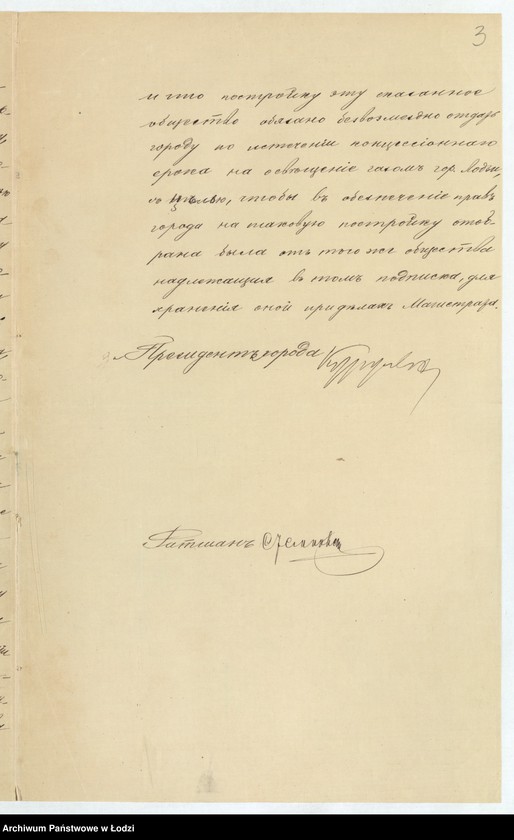 3
и что постройку эту сказанное
общество обязано безвозмездно отдать
городу по истечении концессіоннаго
срока на освѣщеніе газомъ гор. Лодзи,
съ цѣлью, чтобы въ обезпеченіе правъ
города на таковую постройку отоб-
рана была отъ того же общества
надлежащая въ томъ подписка, для
храненія оной при дѣлахъ Магистрата.
Президентъ города
Ратманъ
Archiwum Państwowe w Łodzi